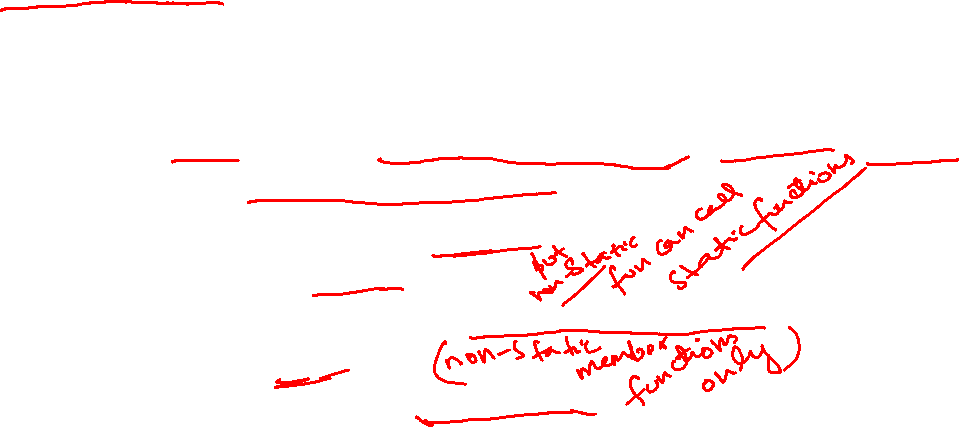 but
non static
fun can call
static functions
(non-static
member
functions
only)